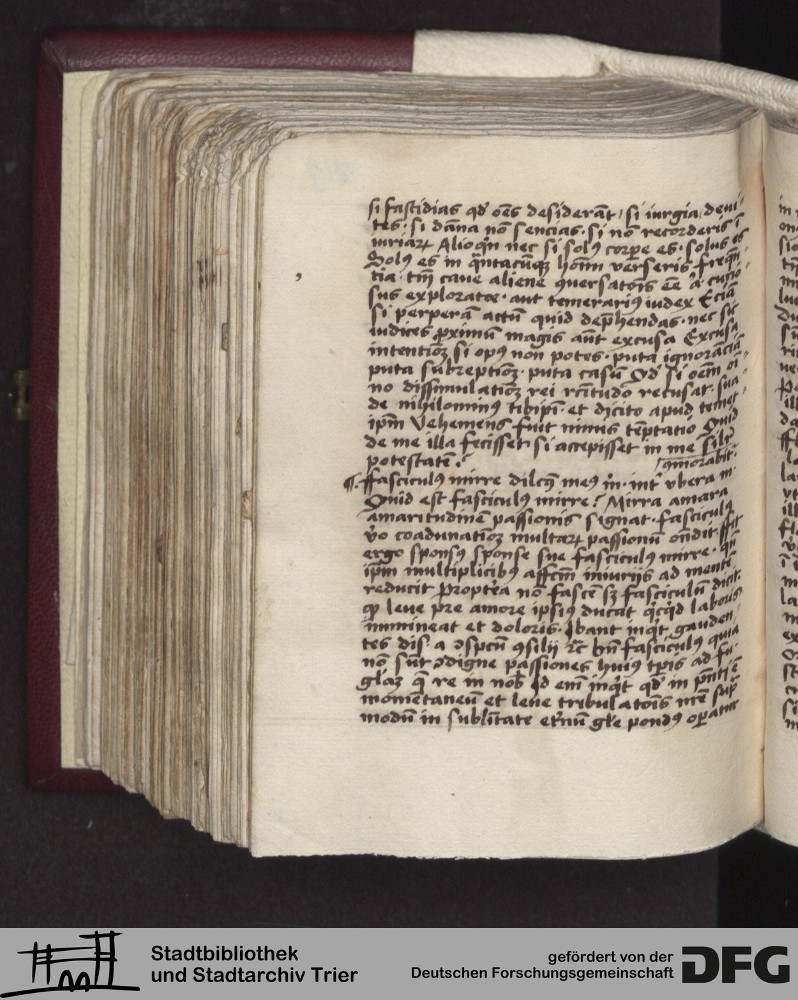 si fastidias qd' oēs desiderāt / si iurgia deui-
tes · si dāna nō sencias · si nō recorderis ī
iuriaꝝ Alioqn nec si solꝰ corpe es · solus es
Solꝰ es in qntacūqꝫ hoīm verseris freqn-
tia · tm̄ caue aliene ꝯuersatōis eē a' curio
sus exploratoe · aut temerariꝰ iudex Eciā
si perperā actū quid dep̄hendas · nec sic
iudices ꝓximū magis aūt excusa Excusa
intentioꝫ si opꝰ non potes · puta ignorācia
puta subreptioꝫ · puta casū Qd' si oēm oī
no dissimulatioꝫ rei rcītudo recusat · sua
de nihilominꝰ tibipī et dicito apud temet
ipm̄ Vehemens fuit nimis tēptatio Quid
de me illa fecisset · si accepisset in me silr
potestatē ? ꝯmorabit'
¶ ffasciculꝰ mirre dilcꝰ meꝰ m · int' vbera m
Quid est fasciculꝰ mirre ? Mirra amara
amaritudinē passionis signat · fasciculꝰ
v̊o coadunatioꝫ multaꝝ passionū ondit ffit
ergo sponsꝰ sponse sue fasciculꝰ mirre · qn
ipm̄ multiplicibꝰ affcm̄ iniurijs ad mentē
reducit Proptea nō fascē sꝫ fasciculū dicit
qꝫ leue p̄re amore ipsiꝰ ducat qcqd laboris
immineat et doloris · Ibant inqt gauden-
tes dis · a ꝯspcū ꝯsilij ⁊c bn̄ fasciculꝰ quia
nō sūt ꝯdigne passiones huiꝰ tpis ad fu-
glaꝫ q̄ re in nob Id em̄ inqt qd' in pn̄ti ē
momētaneū et leue tribulatōis nr̄e sup̄
modū in sublītate et'nū gle pondꝰ opatur
Stadtbibliothek
und Stadtarchiv Trier
gefördert von der
Deutschen Forschungsgemeinschaft
DFG